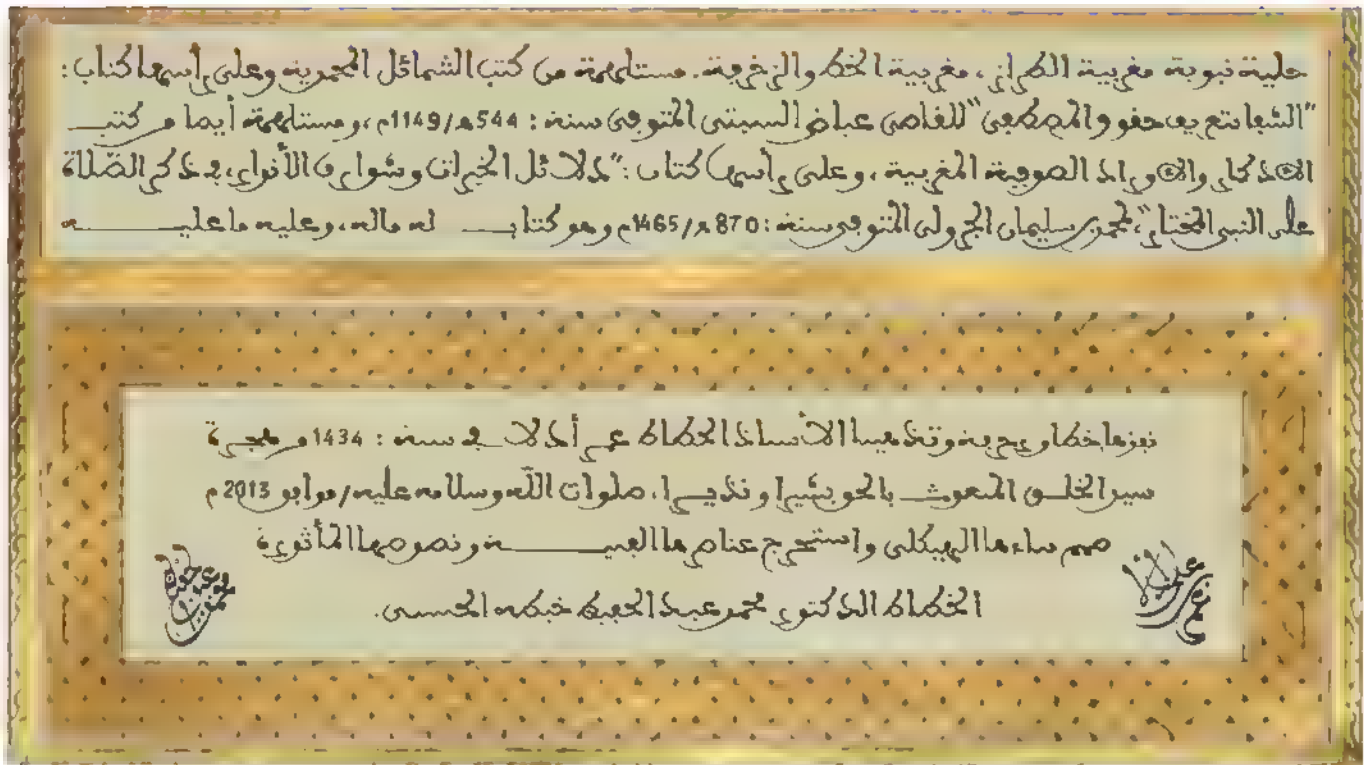 حلية نبوية مغربية الطراز، مغربية الخط والزخرفة. مستلهمة من كتب الشمائل المحمدية وعلى رأسها كتاب:
"الشفا بتعريف حقوق المصطفى" للقاضي عياض السبتي المتوفى سنة: 544ھ/1149م، ومستلهمة أيضا من كتب
الأذكار والأوراد الصوفية المغربية، وعلى رأسها كتاب: "دلائل الخيرات وشوارق الأنوار، في ذكر الصّلاة
على النبي المختار"، لمحمد بن سليمان الجزولي المتوفى سنة: 870ھ/1465م وهو كتاب له ماله، وعليه ما عليه
نفذها خطا وزخرفة وتذهيبا الأستاذ الخطاط عمر أدلا في سنة: 1434 من هجرة
سيد الخلق المبعوث بالحق بشيرا ونذيرا، صلوات اللّه وسلامه عليه/موافق 2013م
صمم بناءها الهيكلي واستخرج عناصرها الفنية ونصوصها المأثورة
الخطاط الدكتور محمد عبد الحفيظ خبطه الحسني.